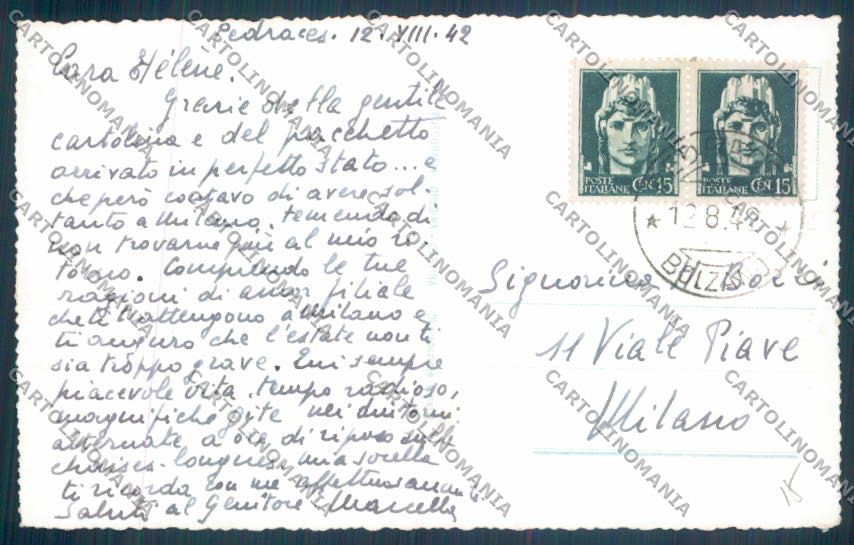 Pedraces. 12.VIII.42
Cara Hélène.
Grazie della gentile
cartolina e del pacchetto
arrivato in perfetto stato... e
che però contavo di avere sol-
tanto a Milano, temendo di
non trovarne più al mio ri
torno. Comprendo le tue
ragioni di amor filiale
che ti trattengono a Milano e
ti auguro che l'estate non ti
sia troppo grave. Qui sempre
piacevole vita, tempo radioso,
magnifiche gite nei dintorni
alternate a ore di riposo sulle
chaises-longues. mia sorella
ti ricorda con me affettuosamente
Saluti al Genitore Marcella
POSTE
ITALIANE
CEN. 15
POSTE
ITALIANE
CEN. 15
12.8.42
BOLZANO
Signorina H.
11 Viale Piave
Milano
15
CARTOLINOMANIA